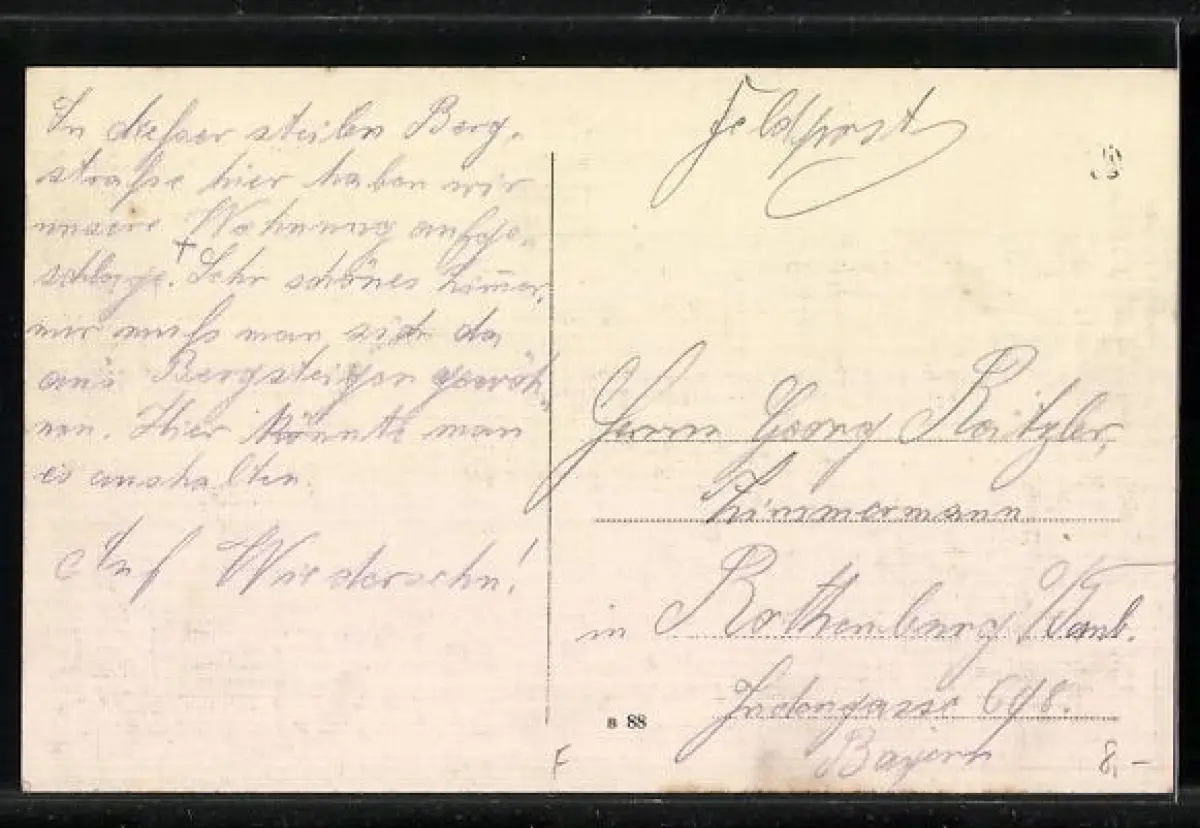 In diesser steilen Berg-
strasse hier haben wir
unsere Wohnung aufge-
schlage. Sehr schönes Zimmer,
nur muss man sich da
ans Bergsteigen gewöh-
nen. Hier könnte man
es aushalten.
Auf Wiedersehn!
Feldpost
Herrn Georg Raitzler,
Zimmermann
in Rothenburg o/Taub.
Judengasse 698.
Bayern
B 88
F
8,-